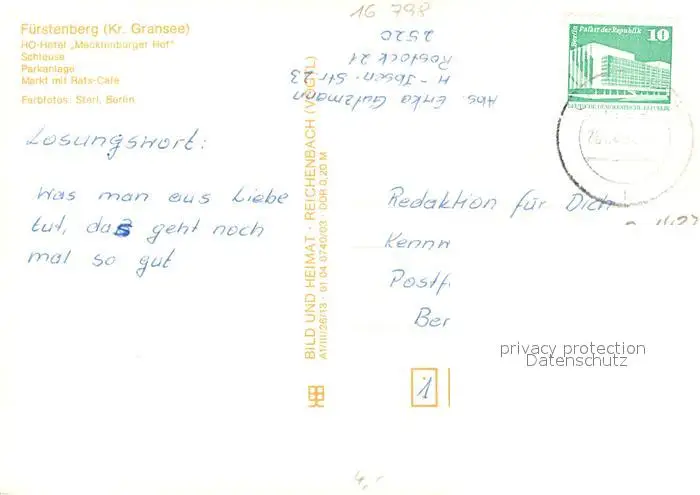 Fürstenberg (Kr. Gransee)
HO-Hotel „Mecklenburger Hof"
Schleuse
Parkanlage
Markt mit Rats-Café
Farbfotos: Sterl, Berlin
Losungswort:
Was man aus Liebe
tut, das geht noch
mal so gut
BILD UND HEIMAT · REICHENBACH (VOGTL)
A1/III/26/13 · 01 04 0740/03 · DDR 0,20 M
16 798
Abs. Erika Gutzmann
H-Ibsen-Str. 23
Rostock 21
2520
Berlin Palast der Republik
10
DEUTSCHE DEMOKRATISCHE REPUBLIK
Redaktion für Dich
Kennw
Postf
Ber
privacy protection
Datenschutz
1
4,-